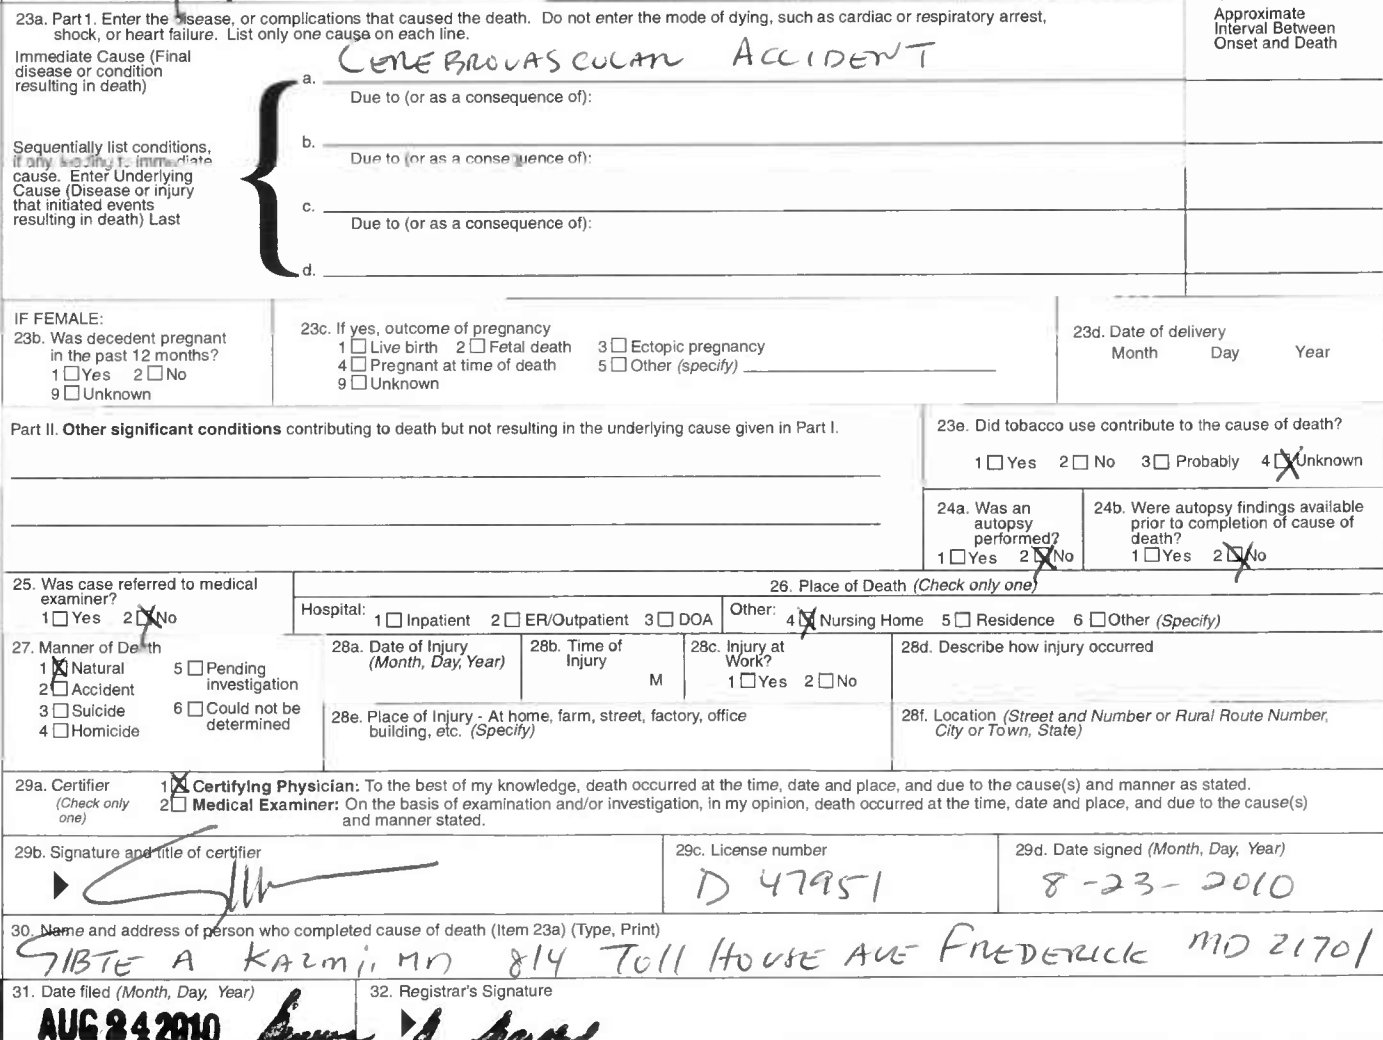 23a. Part 1. Enter the disease, or complications that caused the death. Do not enter the mode of dying, such as cardiac or respiratory arrest,
shock, or heart failure. List only one cause on each line.
Approximate
Interval Between
Onset and Death
Immediate Cause (Final
disease or condition
resulting in death)
a. CEREBROVASCULAR ACCIDENT
Due to (or as a consequence of):
b.
Due to (or as a consequence of):
Sequentially list conditions,
if any leading to immediate
cause. Enter Underlying
Cause (Disease or injury
that initiated events
resulting in death) Last
c.
Due to (or as a consequence of):
d.
IF FEMALE:
23b. Was decedent pregnant
in the past 12 months?
1 ☐ Yes 2 ☐ No
9 ☐ Unknown
23c. If yes, outcome of pregnancy
1 ☐ Live birth 2 ☐ Fetal death 3 ☐ Ectopic pregnancy
4 ☐ Pregnant at time of death 5 ☐ Other (specify)
9 ☐ Unknown
23d. Date of delivery
Month Day Year
Part II. Other significant conditions contributing to death but not resulting in the underlying cause given in Part I.
23e. Did tobacco use contribute to the cause of death?
1 ☐ Yes 2 ☐ No 3 ☐ Probably 4 ☒ Unknown
24a. Was an
autopsy
performed?
1 ☐ Yes 2 ☒ No
24b. Were autopsy findings available
prior to completion of cause of
death?
1 ☐ Yes 2 ☒ No
25. Was case referred to medical
examiner?
1 ☐ Yes 2 ☒ No
26. Place of Death (Check only one)
Hospital: 1 ☐ Inpatient 2 ☐ ER/Outpatient 3 ☐ DOA
Other: 4 ☒ Nursing Home 5 ☐ Residence 6 ☐ Other (Specify)
27. Manner of Death
1 ☒ Natural
2 ☐ Accident
3 ☐ Suicide
4 ☐ Homicide
5 ☐ Pending
investigation
6 ☐ Could not be
determined
28a. Date of Injury
(Month, Day, Year)
28b. Time of
Injury
M
28c. Injury at
Work?
1 ☐ Yes 2 ☐ No
28d. Describe how injury occurred
28e. Place of Injury - At home, farm, street, factory, office
building, etc. (Specify)
28f. Location (Street and Number or Rural Route Number,
City or Town, State)
29a. Certifier
(Check only
one)
1 ☒ Certifying Physician: To the best of my knowledge, death occurred at the time, date and place, and due to the cause(s) and manner as stated.
2 ☐ Medical Examiner: On the basis of examination and/or investigation, in my opinion, death occurred at the time, date and place, and due to the cause(s)
and manner stated.
29b. Signature and title of certifier
29c. License number
D 47951
29d. Date signed (Month, Day, Year)
8-23-2010
30. Name and address of person who completed cause of death (Item 23a) (Type, Print)
SIBTE A KAZMI, MD 814 TOLL HOUSE AVE FREDERICK MD 21701
31. Date filed (Month, Day, Year)
AUG 24 2010
32. Registrar's Signature